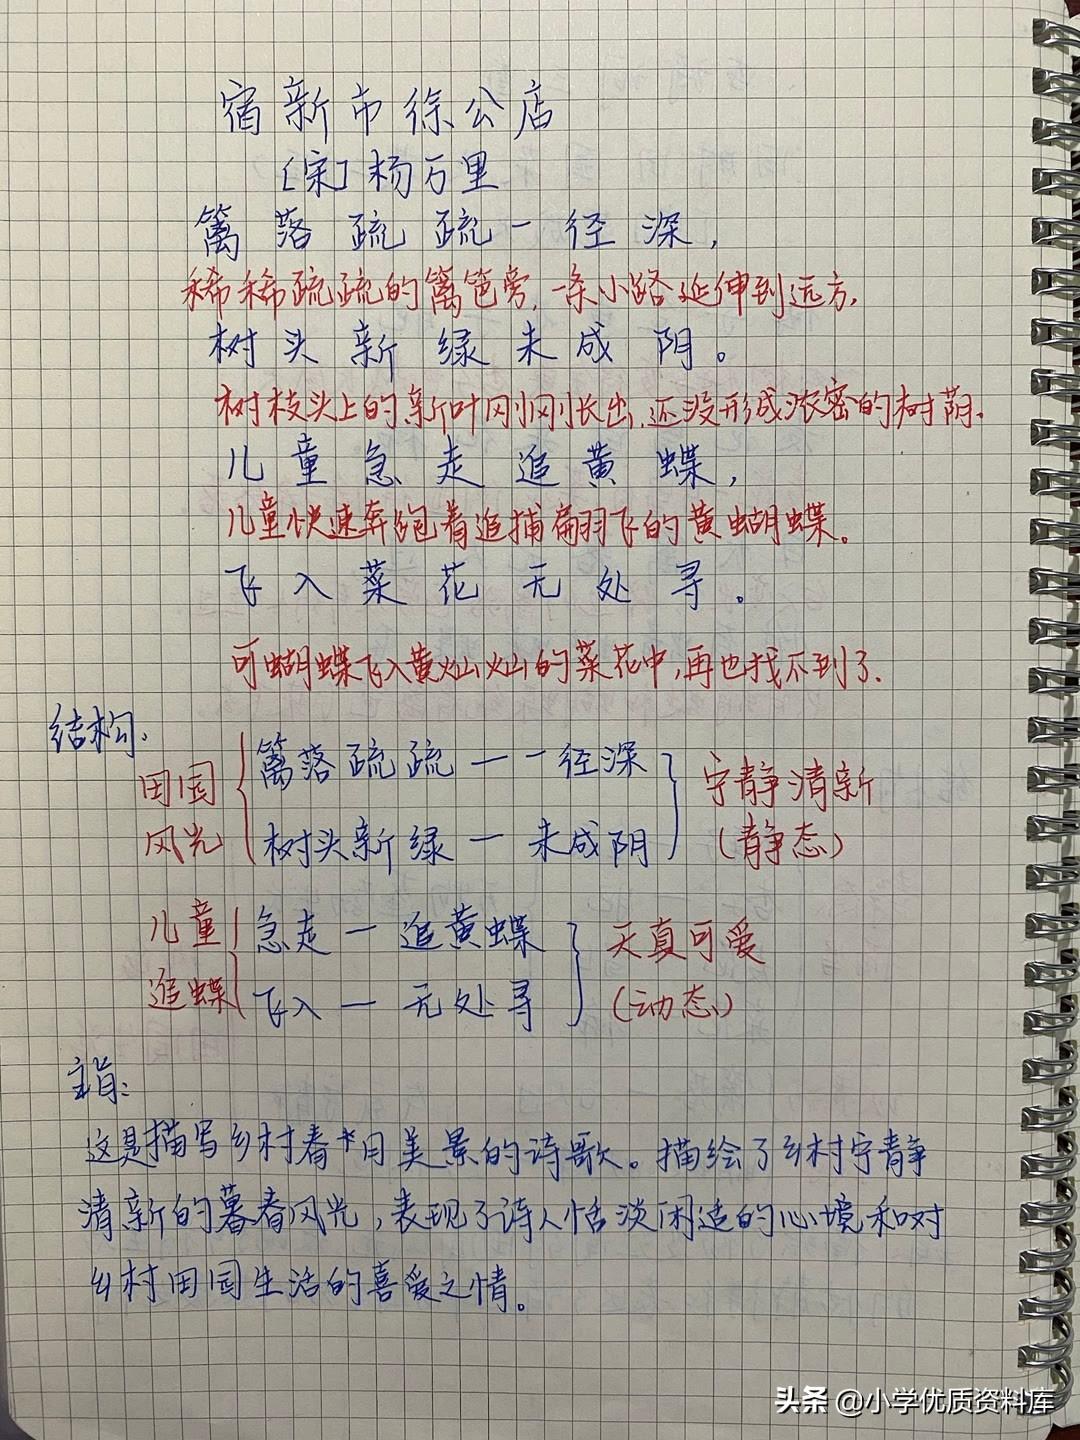 宿新市徐公店
[宋]杨万里
篱落疏疏一径深，
稀稀疏疏的篱笆旁，一条小路延伸到远方，
树头新绿未成阴。
树枝头上的新叶刚刚长出，还没形成浓密的树荫。
儿童急走追黄蝶，
儿童快速奔跑着追捕翩翩飞的黄蝴蝶。
飞入菜花无处寻。
可蝴蝶飞入黄灿灿的菜花中，再也找不到了。
结构：
田园 篱落疏疏——一径深 宁静清新
风光 树头新绿—未成阴 (静态)
儿童 急走—追黄蝶 天真可爱
追蝶 飞入—无处寻 (动态)
主旨：
这是描写乡村春日美景的诗歌。描绘了乡村宁静
清新的暮春风光，表现了诗人恬淡闲适的心境和对
乡村田园生活的喜爱之情。
头条 @小学优质资料库